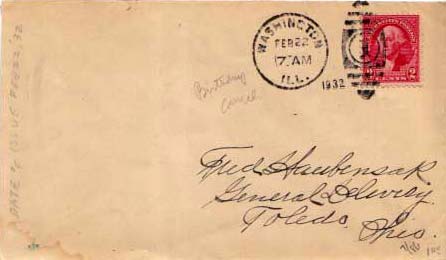 WASHINGTON
FEB 22
17 AM
ILL.
1932
2 CENTS 2
Birthday
Cancel
DATE of ISSUE FEB 22, '32
Fred Haubensak
General Delivery
Toledo, Ohio.